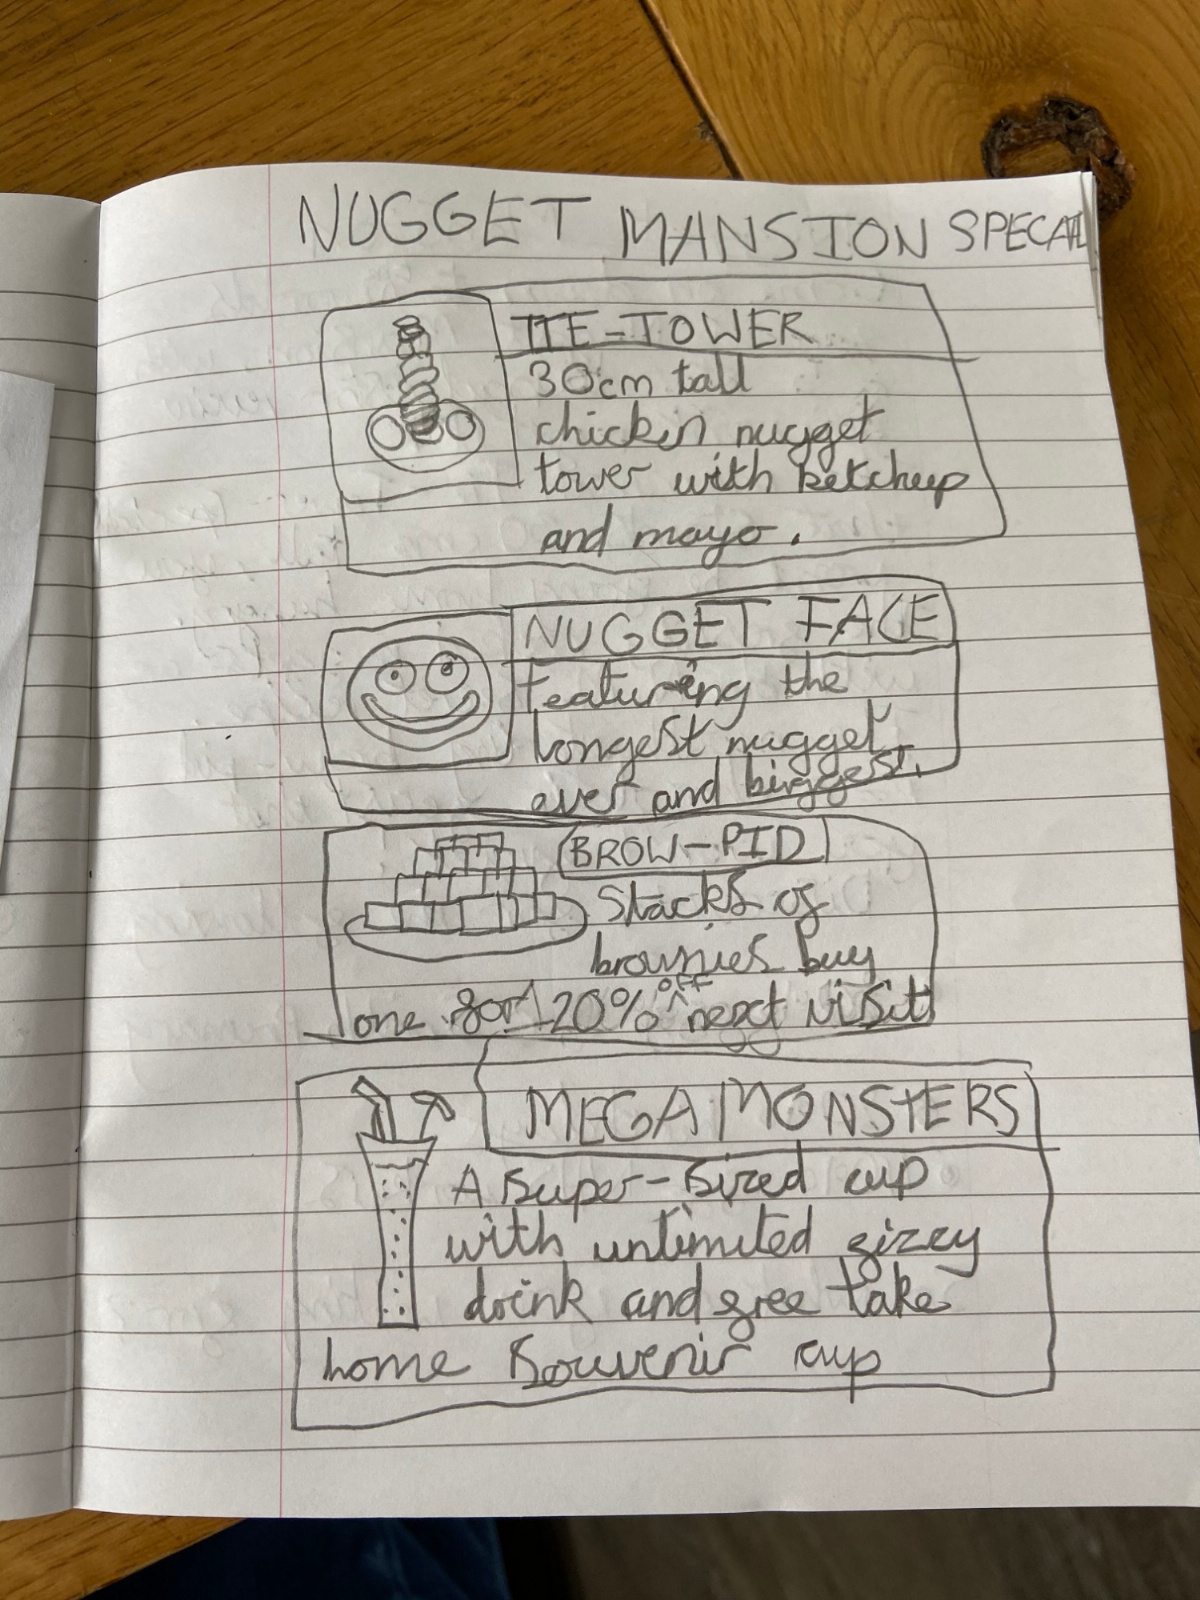 NUGGET MANSION SPECAIL
ITE-TOWER
30cm tall
chicken nugget
tower with ketchup
and mayo.
NUGGET FACE
featuring the
longest nugget
ever and biggest.
BROW-PID
Stacks of
brownies buy
one for 20% off next visit
MEGA MONSTERS
A Super-Sized cup
with unlimited fizzy
drink and free take
home Souvenir cup